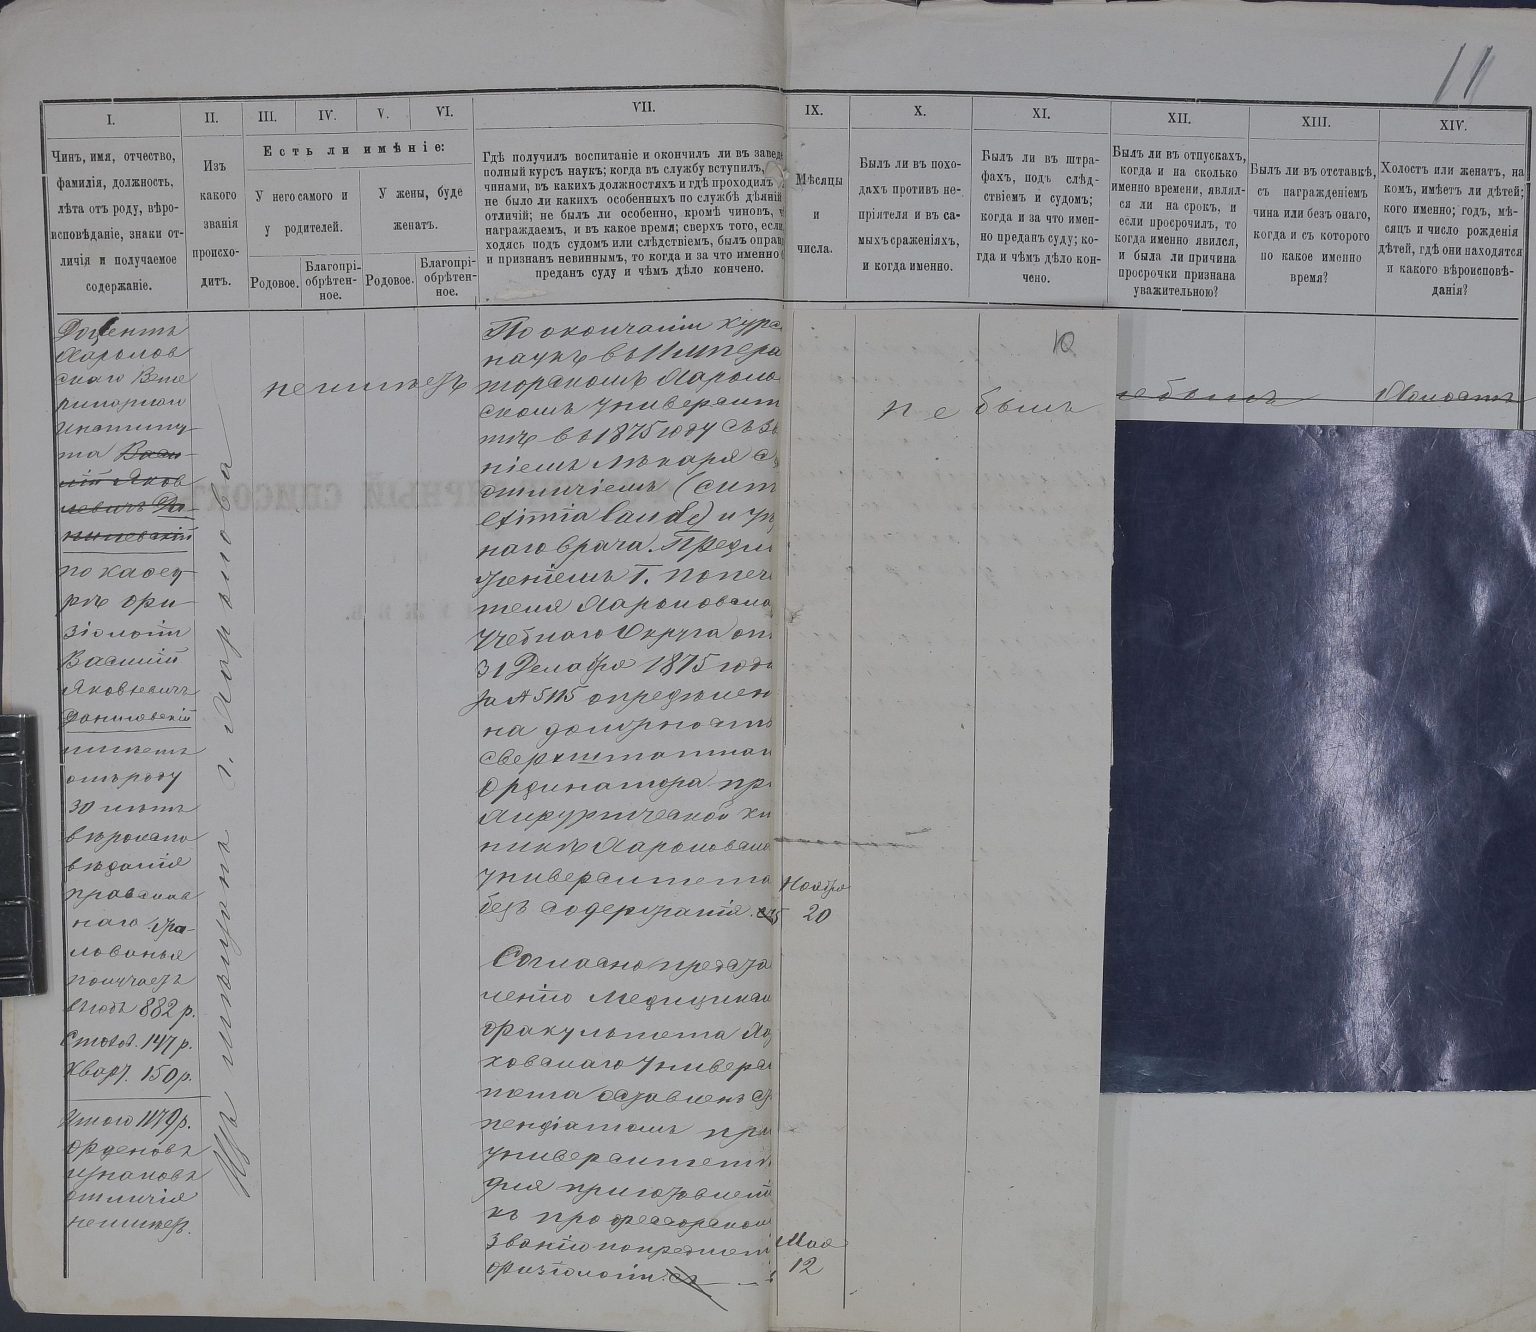 11
I.
II.
III.
IV.
V.
VI.
VII.
IX.
X.
XI.
XII.
XIII.
XIV.
Чинъ, имя, отчество,
фамилія, должность,
лѣта отъ роду, вѣро-
исповѣданіе, знаки от-
личія и получаемое
содержаніе.
Изъ
какого
званія
происхо-
дитъ.
Есть ли имѣніе:
У него самого и
у родителей.
У жены, буде
женатъ.
Родовое.
Благопрі-
обрѣтен-
ное.
Родовое.
Благопрі-
обрѣтен-
ное.
Гдѣ получилъ воспитаніе и окончилъ ли въ завед
полный курсъ наукъ; когда въ службу вступилъ,
чинами, въ какихъ должностяхъ и гдѣ проходилъ
не было ли какихъ особенныхъ по службѣ дѣяній
отличій; не былъ ли особенно, кромѣ чиновъ, ч
награждаемъ, и въ какое время; сверхъ того, если
ходясь подъ судомъ или слѣдствіемъ, былъ оправ
и признанъ невиннымъ, то когда и за что именно
преданъ суду и чѣмъ дѣло кончено.
Мѣсяцы
и
числа.
Былъ ли въ похо-
дахъ противъ не-
пріятеля и въ са-
мыхъ сраженіяхъ,
и когда именно.
Былъ ли въ штра-
фахъ, подъ слѣд-
ствіемъ и судомъ;
когда и за что имен-
но преданъ суду; ко-
гда и чѣмъ дѣло кон-
чено.
Былъ ли въ отпускахъ,
когда и на сколько
именно времени, являл-
ся ли на срокъ, и
если просрочилъ, то
когда именно явился,
и была ли причина
просрочки признана
уважительною?
Былъ ли въ отставкѣ,
съ награжденіемъ
чина или безъ онаго,
когда и съ котораго
по какое именно
время?
Холостъ или женатъ, на
комъ, имѣетъ ли дѣтей;
кого именно; годъ, мѣ-
сяцъ и число рожденія
дѣтей, гдѣ они находятся
и какого вѣроисповѣ-
данія?
Доцентъ
Харьков
скаго Вете
ринарнаго
Институ-
та Васи-
лій Яков
левичъ Да-
нилевскій
по кафед-
рѣ фи-
зіологіи
Василій
Яковлевичъ
Данилевскій
имѣетъ
отъ роду
30 лѣтъ
вѣроиспо
вѣданія
православ
наго. Жа-
лованья
получаетъ
въ годъ 882 р.
Столов. 147 р.
Кварт. 150 р.
Итого 1179 р.
орденовъ
и знаковъ
отличія
неимѣетъ.
Изъ мѣщанъ г. Харькова
неимѣетъ
По окончаніи курс
наукъ въ Импера
торскомъ Харьков
скомъ Университ
тѣ въ 1875 году съ зв
ніемъ лѣкаря с
отличіемъ (cum
eximia laude) и уѣз
наго врача. Предл
женіемъ Г. Попеч
теля Харьковска
Учебнаго Округа от
31 Декабря 1875 года
за № 5115 опредѣлен
на должность
сверхштатнаг
Ординатора пр
Хирургической кл
никѣ Харьковска
Университета
безъ содержанія. съ
Ноября
20
Согласно предста
ленію Медицинск
факультета Ха
ковскаго Универс
тета оставленъ ст
пендіатомъ при
Университет
для приготовлен
къ профессорском
званію по предмет
физіологіи. съ
Мая
12
10
не былъ
не былъ
Холостъ